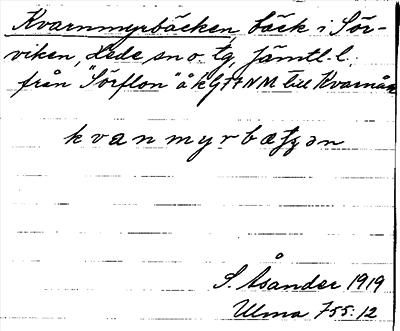 Kvarnmyrbäcken, bäck i Sör-
viken, Hede sn o. tg, Jämtl. l.
från "Sörflon" å kG 77 NM till Kvarnån
kvanmyrbæʃʒən
S. Åsander 1919
Ulma 755:12